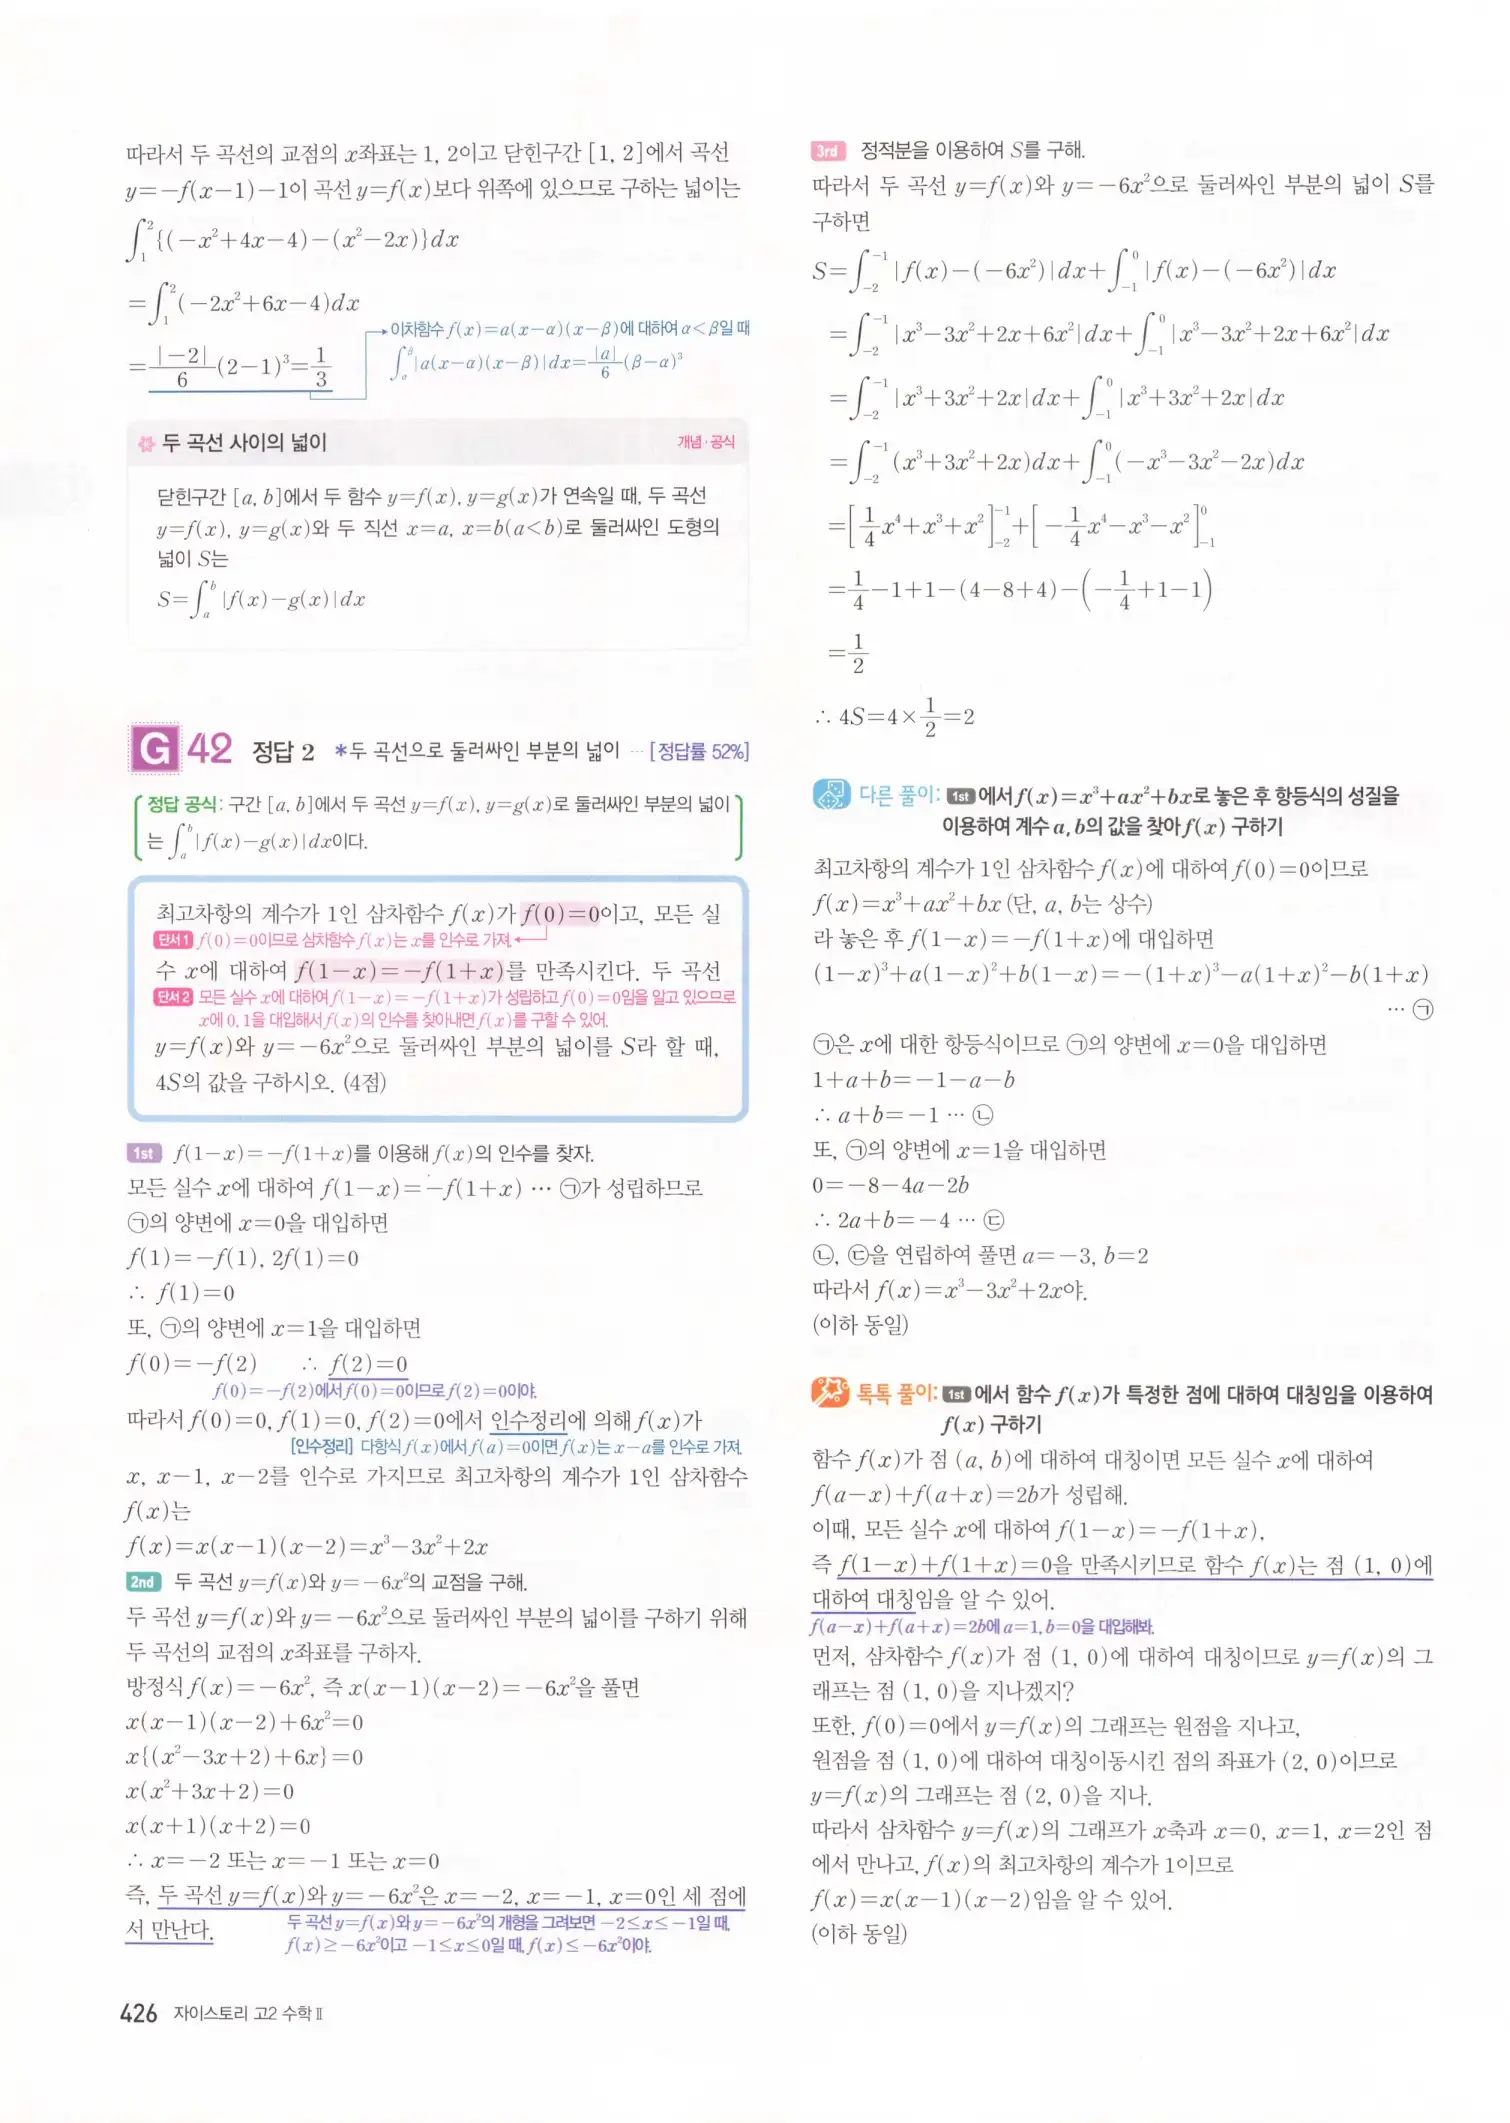 따라서 두 곡선의 교점의 x좌표는 1, 2이고 닫힌구간 [1, 2]에서 곡선
y=-f(x-1)-1이 곡선 y=f(x)보다 위쪽에 있으므로 구하는 넓이는
∫₁²{(-x²+4x-4)-(x²-2x)}dx
=∫₁²(-2x²+6x-4)dx
=|-2|/6(2-1)³=1/3
이차함수 f(x)=a(x-α)(x-β)에 대하여 α<β일 때
∫_α^β|a(x-α)(x-β)|dx=|a|/6(β-α)³
두 곡선 사이의 넓이 개념·공식
닫힌구간 [a, b]에서 두 함수 y=f(x), y=g(x)가 연속일 때, 두 곡선
y=f(x), y=g(x)와 두 직선 x=a, x=b(a<b)로 둘러싸인 도형의
넓이 S는
S=∫_a^b |f(x)-g(x)|dx
G 42 정답 2 *두 곡선으로 둘러싸인 부분의 넓이 ··· [정답률 52%]
정답 공식: 구간 [a, b]에서 두 곡선 y=f(x), y=g(x)로 둘러싸인 부분의 넓이
는 ∫_a^b|f(x)-g(x)|dx이다.
최고차항의 계수가 1인 삼차함수 f(x)가 f(0)=0이고, 모든 실
단서1 f(0)=0이므로 삼차함수 f(x)는 x를 인수로 가져.
수 x에 대하여 f(1-x)=-f(1+x)를 만족시킨다. 두 곡선
단서2 모든 실수 x에 대하여 f(1-x)=-f(1+x)가 성립하고 f(0)=0임을 알고 있으므로
x에 0, 1을 대입해서 f(x)의 인수를 찾아내면 f(x)를 구할 수 있어.
y=f(x)와 y=-6x²으로 둘러싸인 부분의 넓이를 S라 할 때,
4S의 값을 구하시오. (4점)
1st f(1-x)=-f(1+x)를 이용해 f(x)의 인수를 찾자.
모든 실수 x에 대하여 f(1-x)=-f(1+x) ··· ㉠가 성립하므로
㉠의 양변에 x=0을 대입하면
f(1)=-f(1), 2f(1)=0
∴ f(1)=0
또, ㉠의 양변에 x=1을 대입하면
f(0)=-f(2) ∴ f(2)=0
f(0)=-f(2)에서 f(0)=0이므로 f(2)=0이야.
따라서 f(0)=0, f(1)=0, f(2)=0에서 인수정리에 의해 f(x)가
[인수정리] 다항식 f(x)에서 f(a)=0이면 f(x)는 x-a를 인수로 가져.
x, x-1, x-2를 인수로 가지므로 최고차항의 계수가 1인 삼차함수
f(x)는
f(x)=x(x-1)(x-2)=x³-3x²+2x
2nd 두 곡선 y=f(x)와 y=-6x²의 교점을 구해.
두 곡선 y=f(x)와 y=-6x²으로 둘러싸인 부분의 넓이를 구하기 위해
두 곡선의 교점의 x좌표를 구하자.
방정식 f(x)=-6x², 즉 x(x-1)(x-2)=-6x²을 풀면
x(x-1)(x-2)+6x²=0
x{(x²-3x+2)+6x}=0
x(x²+3x+2)=0
x(x+1)(x+2)=0
∴ x=-2 또는 x=-1 또는 x=0
즉, 두 곡선 y=f(x)와 y=-6x²은 x=-2, x=-1, x=0인 세 점에
서 만난다.
두 곡선 y=f(x)와 y=-6x²의 개형을 그려보면 -2≤x≤-1일 때,
f(x)≥-6x²이고 -1≤x≤0일 때, f(x)≤-6x²이야.
426 자이스토리 고2 수학Ⅱ
3rd 정적분을 이용하여 S를 구해.
따라서 두 곡선 y=f(x)와 y=-6x²으로 둘러싸인 부분의 넓이 S를
구하면
S=∫₋₂⁻¹|f(x)-(-6x²)|dx+∫₋₁⁰|f(x)-(-6x²)|dx
=∫₋₂⁻¹|x³-3x²+2x+6x²|dx+∫₋₁⁰|x³-3x²+2x+6x²|dx
=∫₋₂⁻¹|x³+3x²+2x|dx+∫₋₁⁰|x³+3x²+2x|dx
=∫₋₂⁻¹(x³+3x²+2x)dx+∫₋₁⁰(-x³-3x²-2x)dx
=[1/4x⁴+x³+x²]₋₂⁻¹+[-1/4x⁴-x³-x²]₋₁⁰
=1/4-1+1-(4-8+4)-(-1/4+1-1)
=1/2
∴ 4S=4×1/2=2
다른 풀이: 1st에서 f(x)=x³+ax²+bx로 놓은 후 항등식의 성질을
이용하여 계수 a, b의 값을 찾아 f(x) 구하기
최고차항의 계수가 1인 삼차함수 f(x)에 대하여 f(0)=0이므로
f(x)=x³+ax²+bx (단, a, b는 상수)
라 놓은 후 f(1-x)=-f(1+x)에 대입하면
(1-x)³+a(1-x)²+b(1-x)=-(1+x)³-a(1+x)²-b(1+x)
··· ㉠
㉠은 x에 대한 항등식이므로 ㉠의 양변에 x=0을 대입하면
1+a+b=-1-a-b
∴ a+b=-1 ··· ㉡
또, ㉠의 양변에 x=1을 대입하면
0=-8-4a-2b
∴ 2a+b=-4 ··· ㉢
㉡, ㉢을 연립하여 풀면 a=-3, b=2
따라서 f(x)=x³-3x²+2x야.
(이하 동일)
톡톡 풀이: 1st에서 함수 f(x)가 특정한 점에 대하여 대칭임을 이용하여
f(x) 구하기
함수 f(x)가 점 (a, b)에 대하여 대칭이면 모든 실수 x에 대하여
f(a-x)+f(a+x)=2b가 성립해.
이때, 모든 실수 x에 대하여 f(1-x)=-f(1+x),
즉 f(1-x)+f(1+x)=0을 만족시키므로 함수 f(x)는 점 (1, 0)에
대하여 대칭임을 알 수 있어.
f(a-x)+f(a+x)=2b에 a=1, b=0을 대입해봐.
먼저, 삼차함수 f(x)가 점 (1, 0)에 대하여 대칭이므로 y=f(x)의 그
래프는 점 (1, 0)을 지나겠지?
또한, f(0)=0에서 y=f(x)의 그래프는 원점을 지나고,
원점을 점 (1, 0)에 대하여 대칭이동시킨 점의 좌표가 (2, 0)이므로
y=f(x)의 그래프는 점 (2, 0)을 지나.
따라서 삼차함수 y=f(x)의 그래프가 x축과 x=0, x=1, x=2인 점
에서 만나고, f(x)의 최고차항의 계수가 1이므로
f(x)=x(x-1)(x-2)임을 알 수 있어.
(이하 동일)